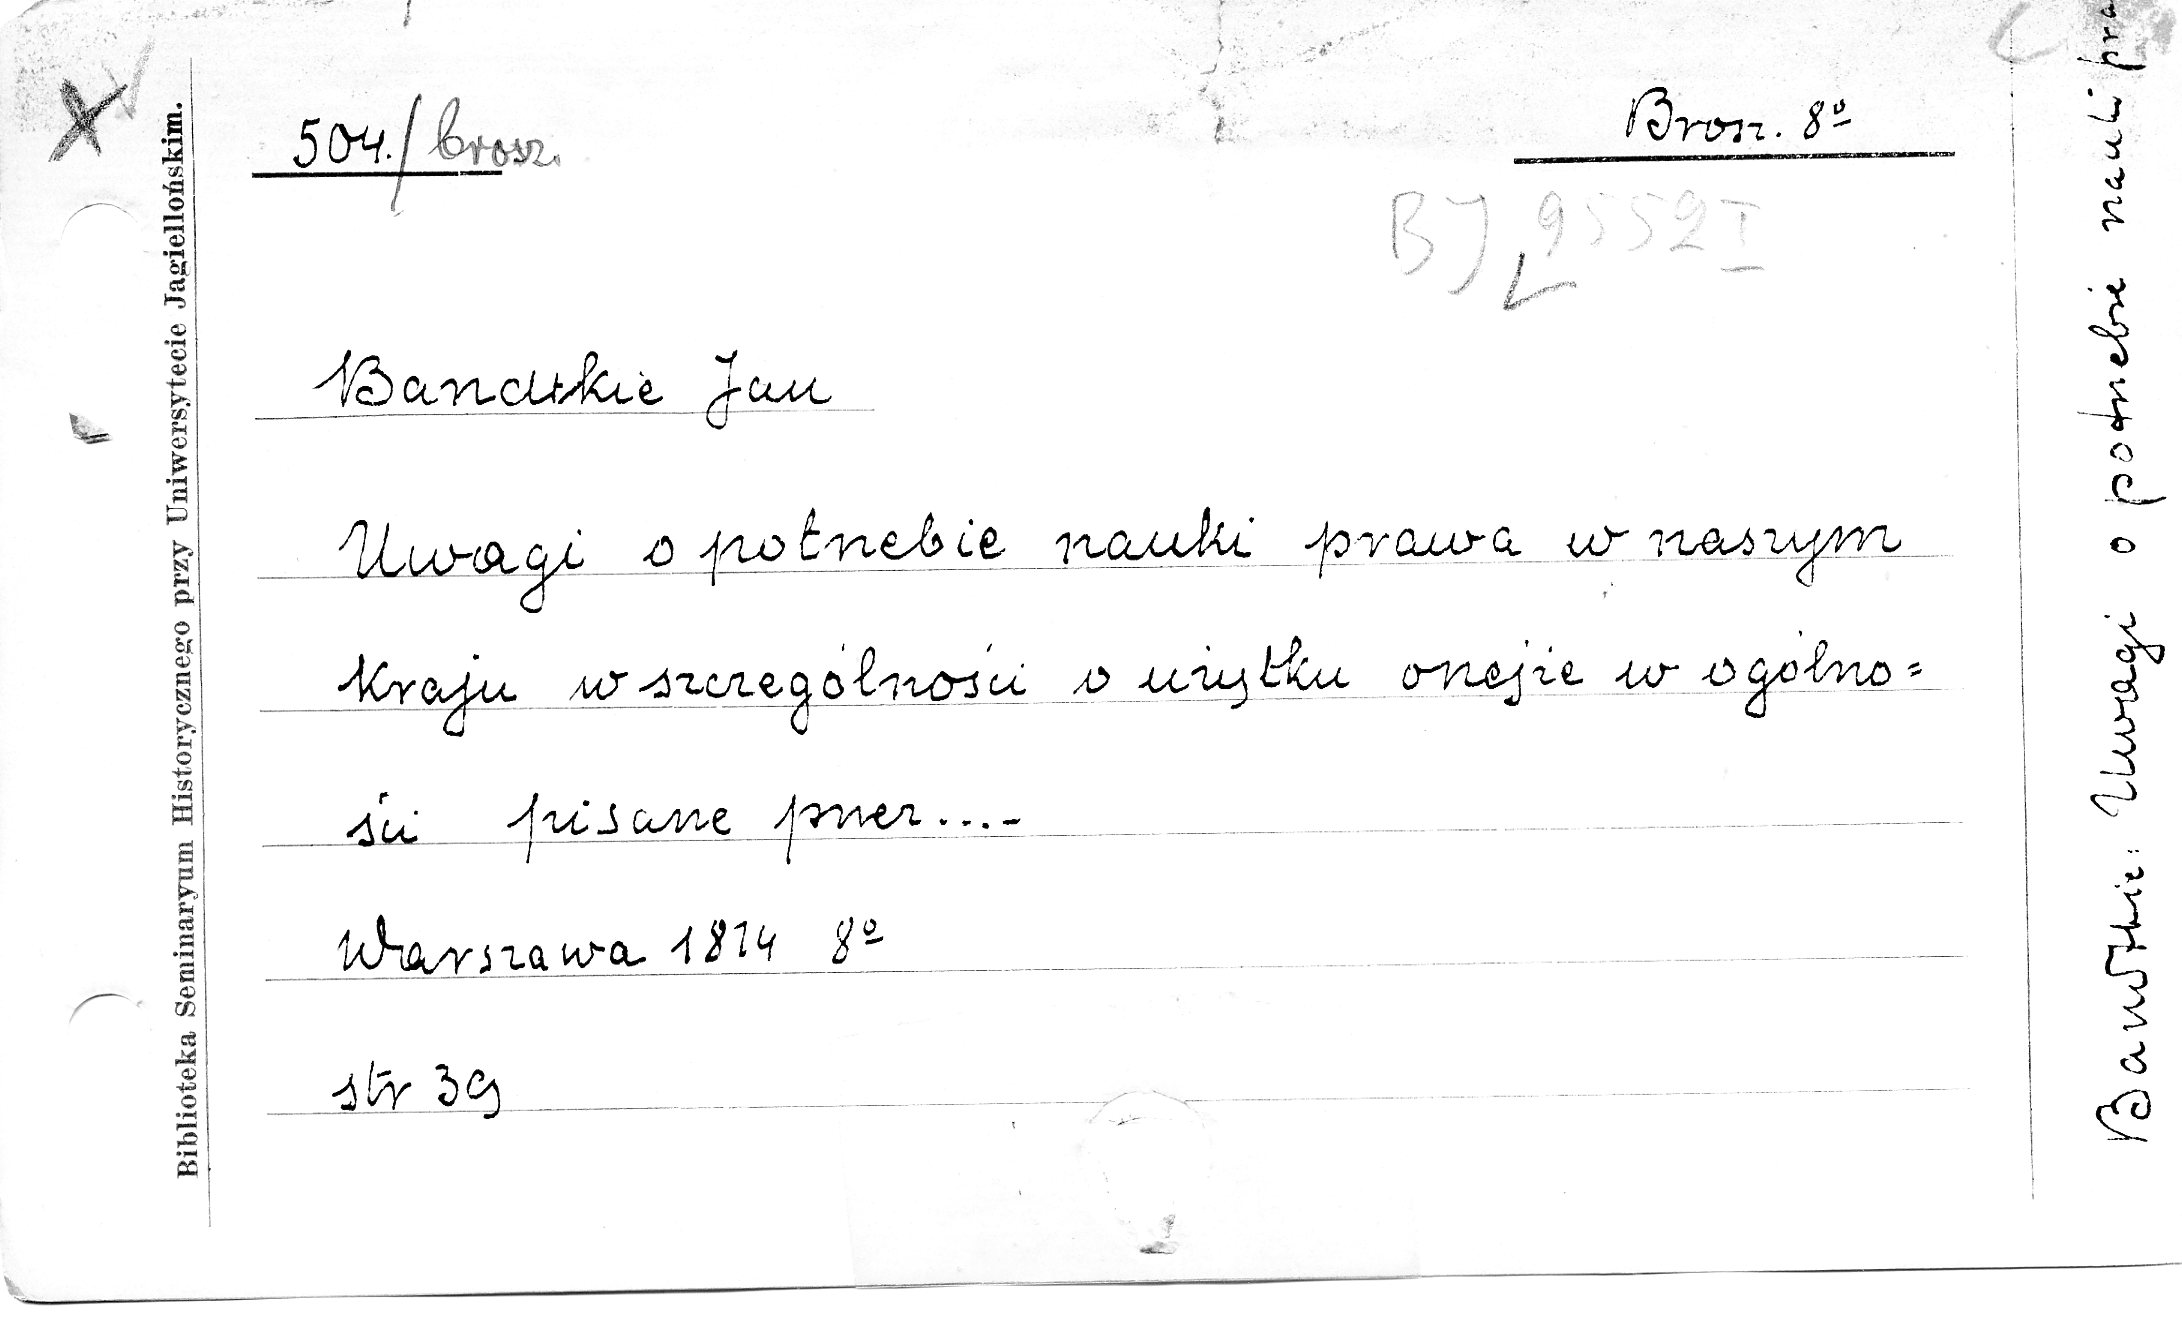 504./brosz.
Brosz. 8º
BJ 9552 I
Bandtkie Jan
Uwagi o potrzebie nauki prawa w naszym
kraju w szczególności o użytku onejże w ogólno=
ści pisane przez....-
Warszawa 1814 8º
str 39
Biblioteka Seminaryum Historycznego przy Uniwersytecie Jagiellońskim.
Bandtkie: Uwagi o potrzebie nauki pra